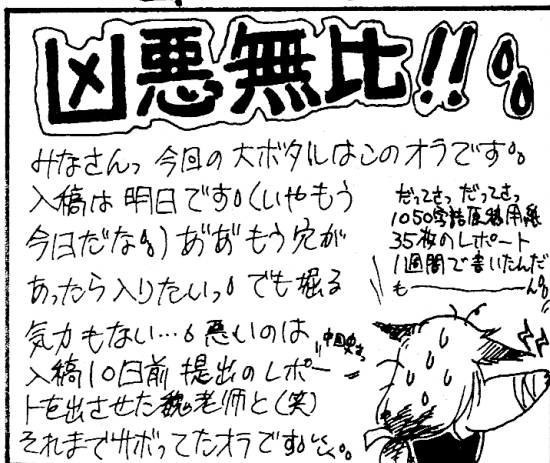 凶悪無比!!
みなさんっ 今回の大ボタルはこのオラです。
入稿は明日です。(いやもう
今日だな。)あ゛あ゛もう穴が
あったら入りたいっ。でも掘る
気力もない…。悪いのは
入稿10日前提出のレポー
トを出させた魏老师と(笑)
それまでサボってたオラです。
だってさっ だってさっ
1050字詰原稿用紙
35枚のレポート
1週間で書いたんだ
も――――ん。
中国史